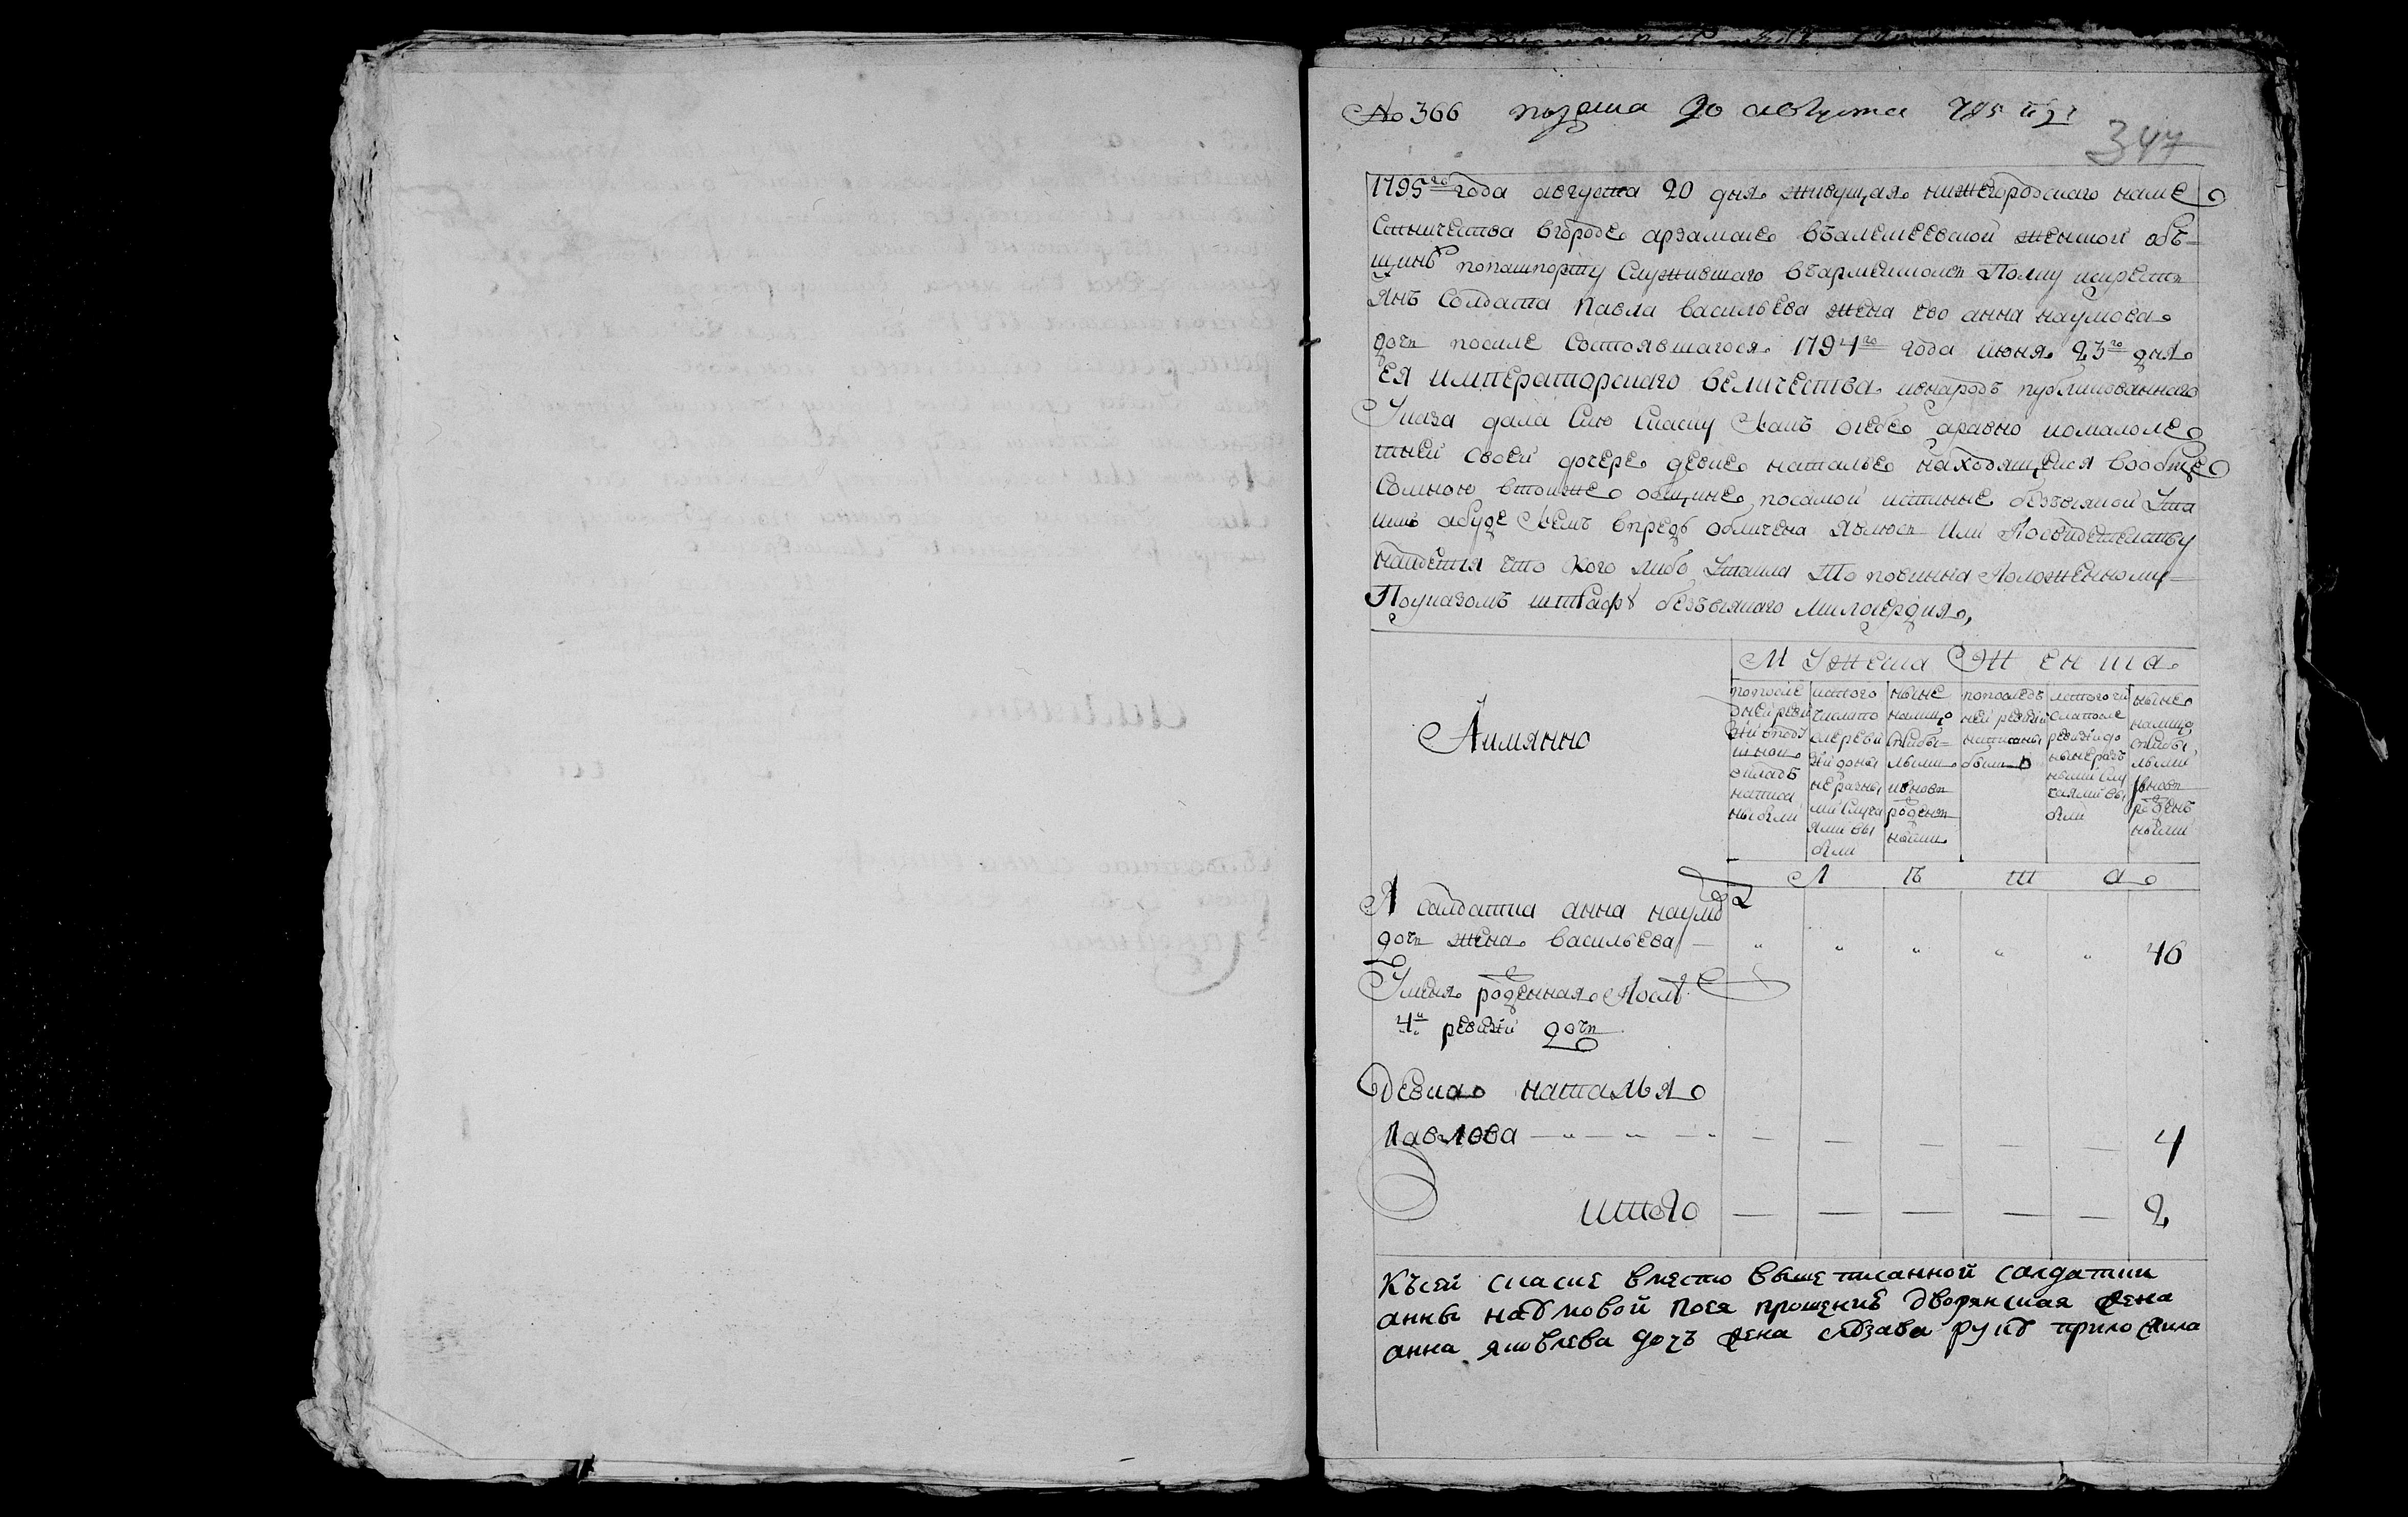 № 366 подана 20 августа 795 году
347
1795го года августа 20 дня живущая нижегородскаго наме
стничества вгороде арзамасе въалексеевской женской объ-
щинѣ попашпорту служившаго въармейском полку искресть
янъ солдата Павла васильева жена ево анна наумова
дочь посиле состоявшагося 1794го года июня 23го дня
ея императорскаго величества ивнародъ публикованнаго
Указа дала сию скаску осебе аравно иомаломе
тней своей дочере девке наталье находящейся вообще
сомною втойже общине посамой истинне безъвсякой Ута
йки абуде вчемъ впредь обличена явлюсь или Посвидетелству
найдется что кого либо Утаила то повинна Положенному
Поуказомъ штрафу безъвсякаго милосердия,
Мужеска Женска
Аимянно
попосле дней ревизии вподушной окладъ написаны были
истого числа после ревизии доныне разными случаями выбыли
ныне налицо сприбылыми ивновь рожденными
попоследъ ней ревизии написаны были
истого числа после ревизии доныне разъ ными случаями выбыли
ныне налицо сприбылыми ивновь рожденъ ными
Л ѣ т а
Я салдатка анна наумова
дочь жена васильева — " " " " " 46
Уменя рожденная Послѣ
4й ревизии дочь
Девка наталья
Павлова — " — " — " — — — — — 4
итого — — — — — 2
Късей скаске вместо вышеписанной солдатки
анны наумовой Поея прошению дворянская жена
анна яковлева дочъ жена руку приложила